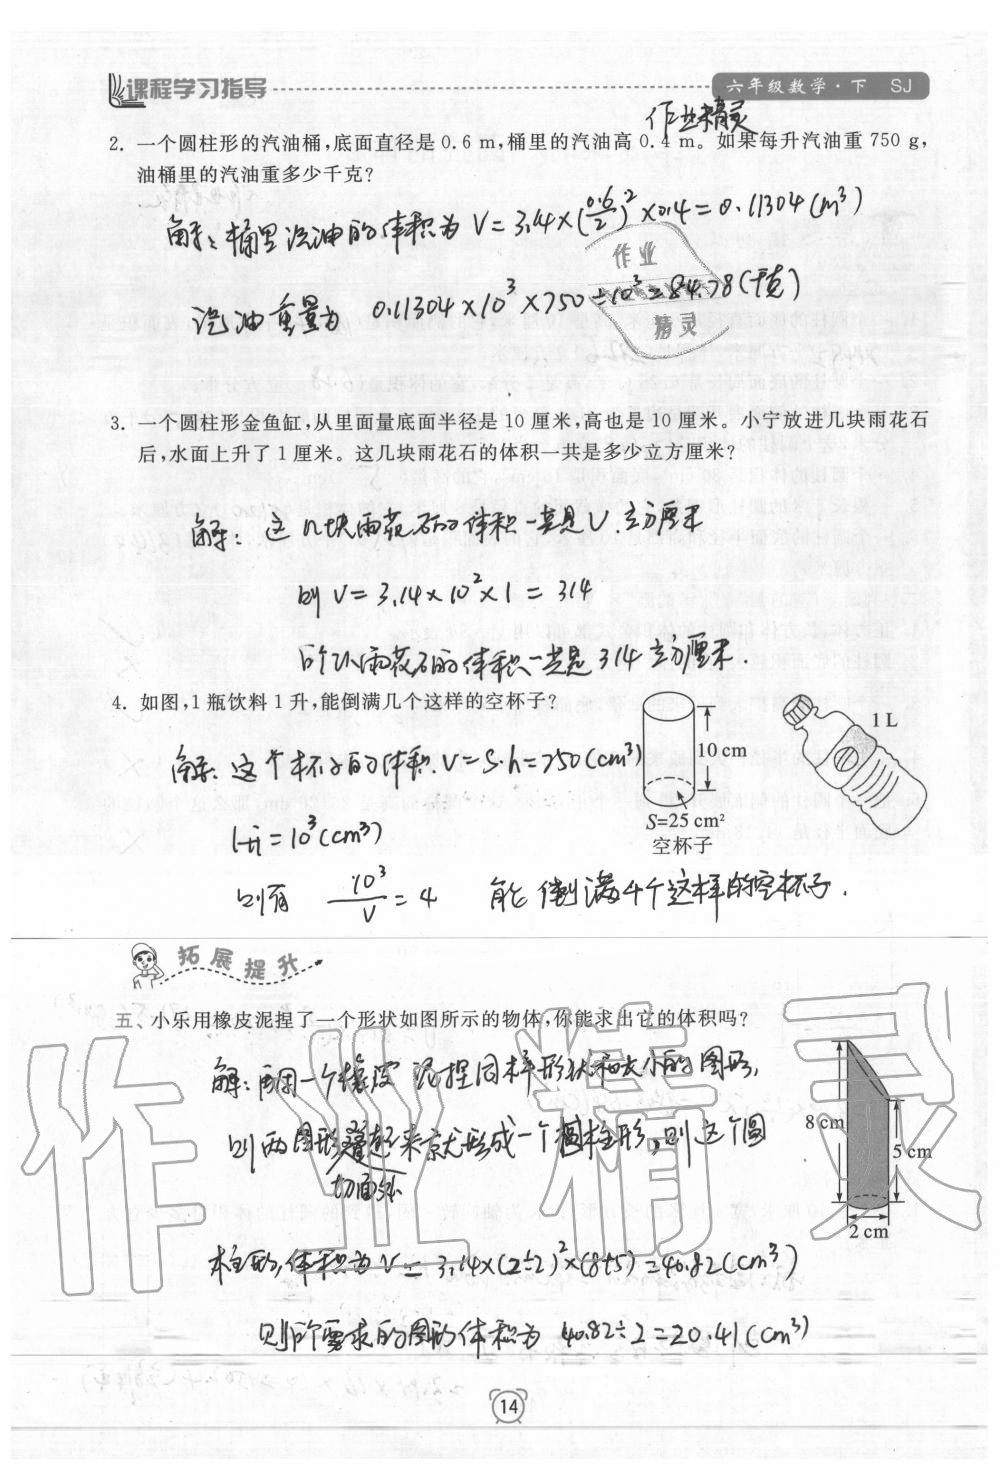 课程学习指导
六年级数学·下 SJ
作业精灵
2. 一个圆柱形的汽油桶,底面直径是 0.6 m,桶里的汽油高 0.4 m。如果每升汽油重 750 g,
油桶里的汽油重多少千克?
解:桶里汽油的体积为 V=3.14×(0.6/2)²×0.4=0.11304(m³)
作业
精灵
汽油重量为 0.11304×10³×750÷10³=84.78(千克)
3. 一个圆柱形金鱼缸,从里面量底面半径是 10 厘米,高也是 10 厘米。小宁放进几块雨花石
后,水面上升了 1 厘米。这几块雨花石的体积一共是多少立方厘米?
解:这几块雨花石的体积一共是V立方厘米
则 V=3.14×10²×1=314
所以雨花石的体积一共是 314 立方厘米.
4. 如图,1 瓶饮料 1 升,能倒满几个这样的空杯子?
1 L
10 cm
S=25 cm²
空杯子
解:这个杯子的体积.V=S·h=250(cm³)
1升=10³(cm³)
则有 10³/V=4 能倒满4个这样的空杯子.
拓展提升
五、小乐用橡皮泥捏了一个形状如图所示的物体,你能求出它的体积吗?
8 cm
5 cm
2 cm
解:再用一个橡皮泥捏同样形状和大小的图形,
则两图形叠起来就形成一个圆柱形,则这个圆
切面
柱形,体积为V=3.14×(2÷2)²×(8+5)=40.82(cm³)
则所要求的图形体积为 40.82÷2=20.41(cm³)
作业精灵
14